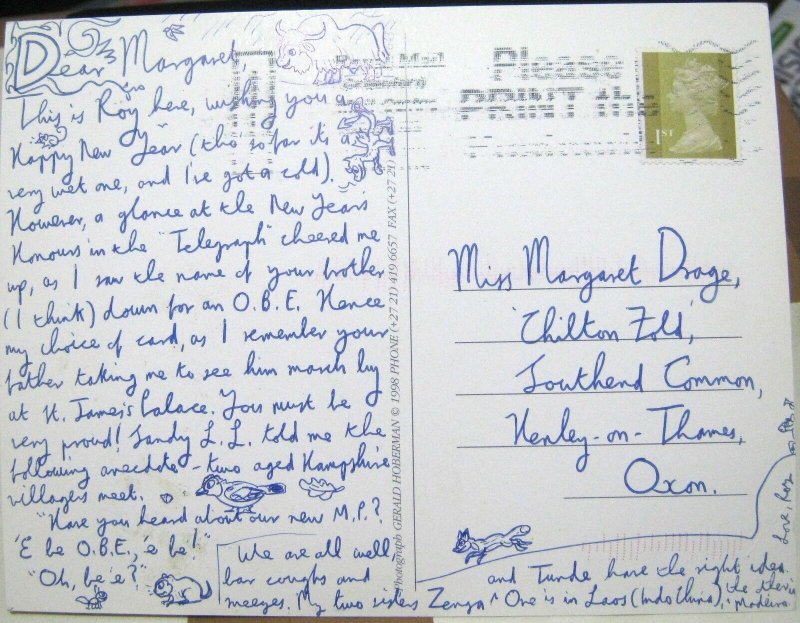 Dear Margaret,
This is Roy here, wishing you a
Happy New Year (tho so far its a
very wet one, and I've got a cold).
However, a glance at the New Years
Honours in the "Telegraph" cheered me
up, as I saw the name of your brother
(I think) down for an O.B.E. Hence
my choice of card, as I remember your
father taking me to see him march by
at St. James's Palace. You must be
very proud! Sandy L.L. told me the
following anecdote - two aged Hampshire
villagers meet.
"Have you heard about our new M.P.?
'E be O.B.E., 'e be!"
"Oh, be 'e?"
We are all well
bar coughs and
sneezes. My two sisters Zenga ^ One is in Laos (Indo China), the other is
and Tunde have the right idea.
Madeira.
Love, Roy
Photograph GERALD HOBERMAN © 1998 PHONE (+27 21) 419 6657 FAX (+27 21)
Royal Mail
Please
PRINT
1ST
Miss Margaret Drage,
'Chilton Fold',
Southend Common,
Henley-on-Thames,
Oxon.